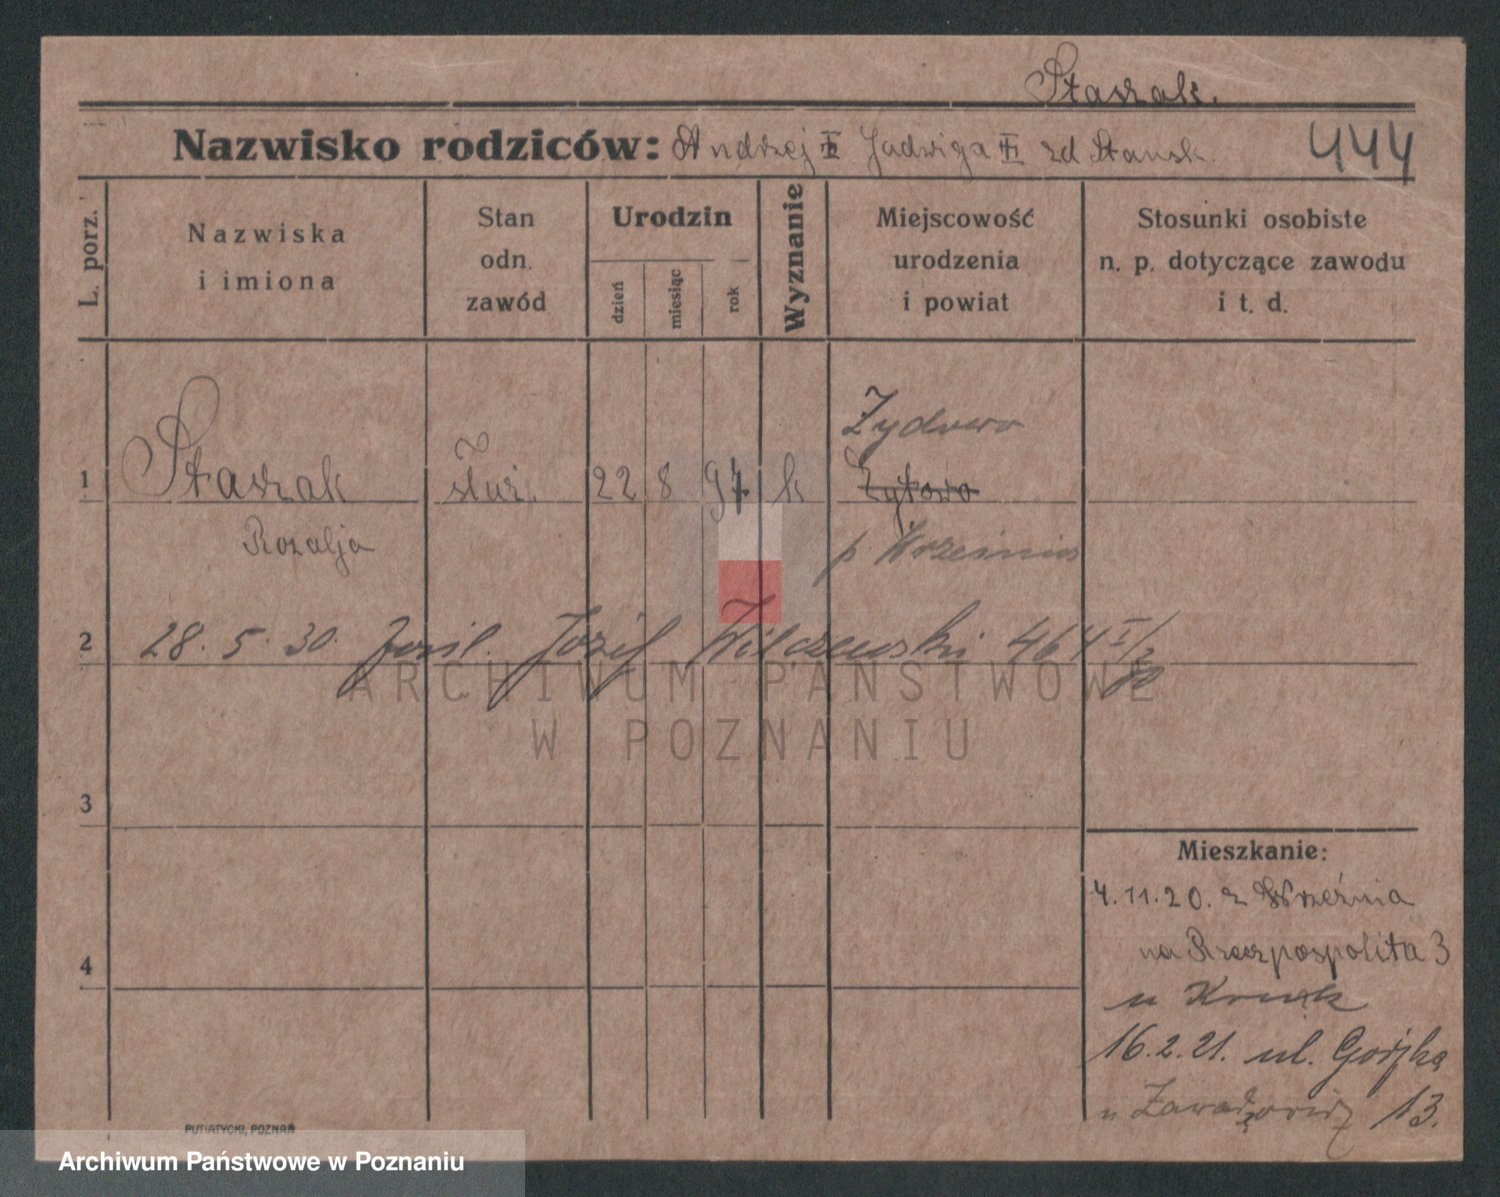 Staszak.
Nazwisko rodziców: Andrzej Jadwiga zd Stansk. 444
L. porz.
Nazwiska
i imiona
Stan
odn.
zawód
Urodzin
dzień
miesiąc
rok
Wyznanie
Miejscowość
urodzenia
i powiat
Stosunki osobiste
n. p. dotyczące zawodu
i t. d.
Żydowo
1 Staszak służ. 22 8 97 k Żytowo
Rozalja p. Września
2 28. 5. 30. Józef Wilczewski
3
4
Mieszkanie:
4.11.20. z Września
na Rzeczpospolita 3
u
16.2.21. ul.
u 13.
PUTIATYCKI, POZNAŃ
ARCHIWUM PAŃSTWOWE
W POZNANIU
Archiwum Państwowe w Poznaniu